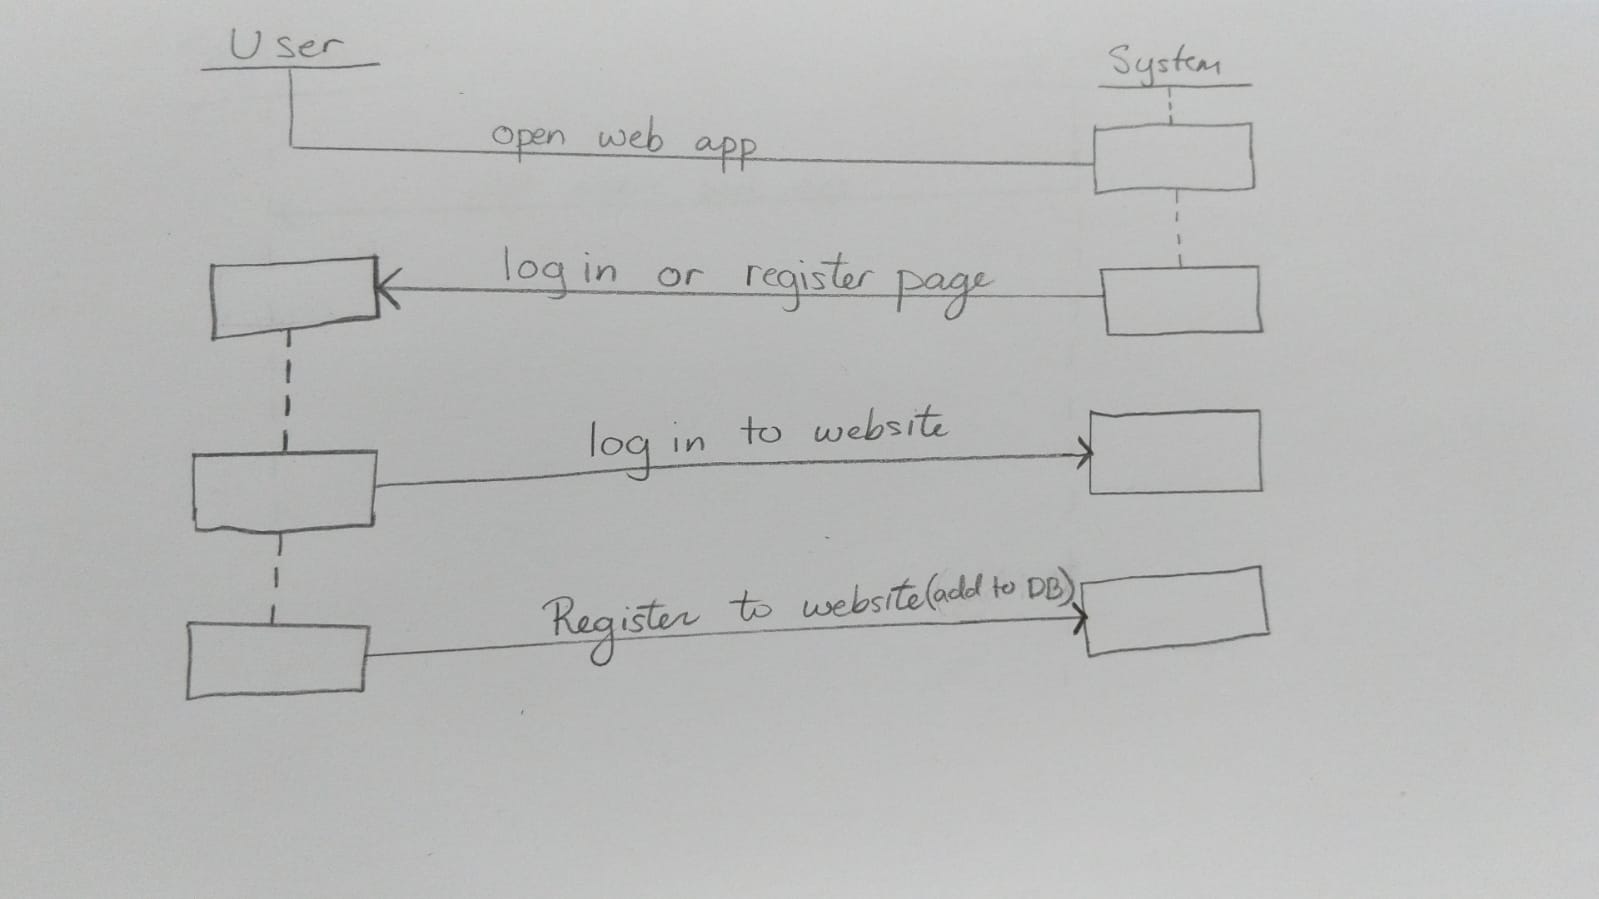 User
System
open web app
log in or register page
log in to website
Register to website (add to DB)